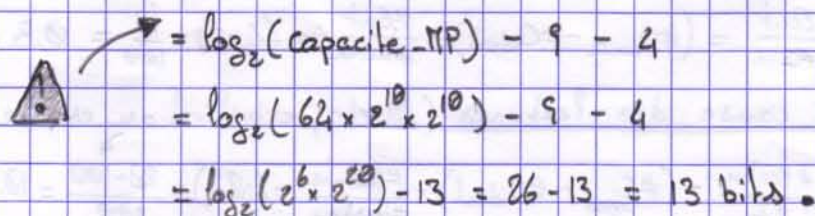 = log₂(capacite_MP) - 9 - 4
= log₂(64 × 2¹⁰ × 2¹⁰) - 9 - 4
= log₂(2⁶ × 2²⁰) - 13 = 26 - 13 = 13 bits.